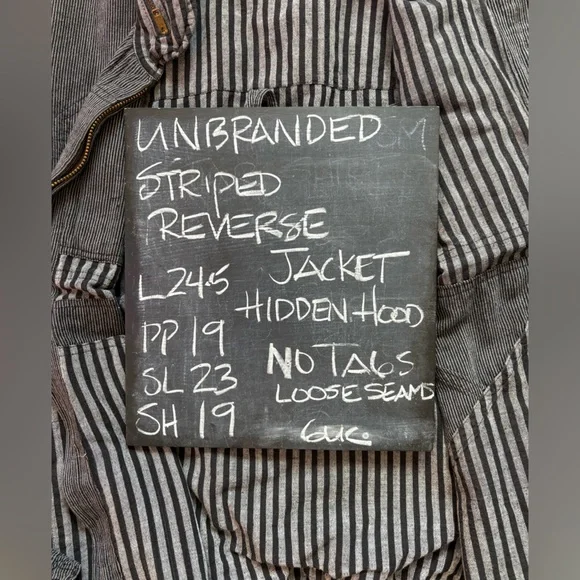 UNBRANDED
STRIPED
REVERSE
JACKET
HIDDEN HOOD
L 24.5
PP 19
SL 23
SH 19
NO TAGS
LOOSE SEAMS
GUC.